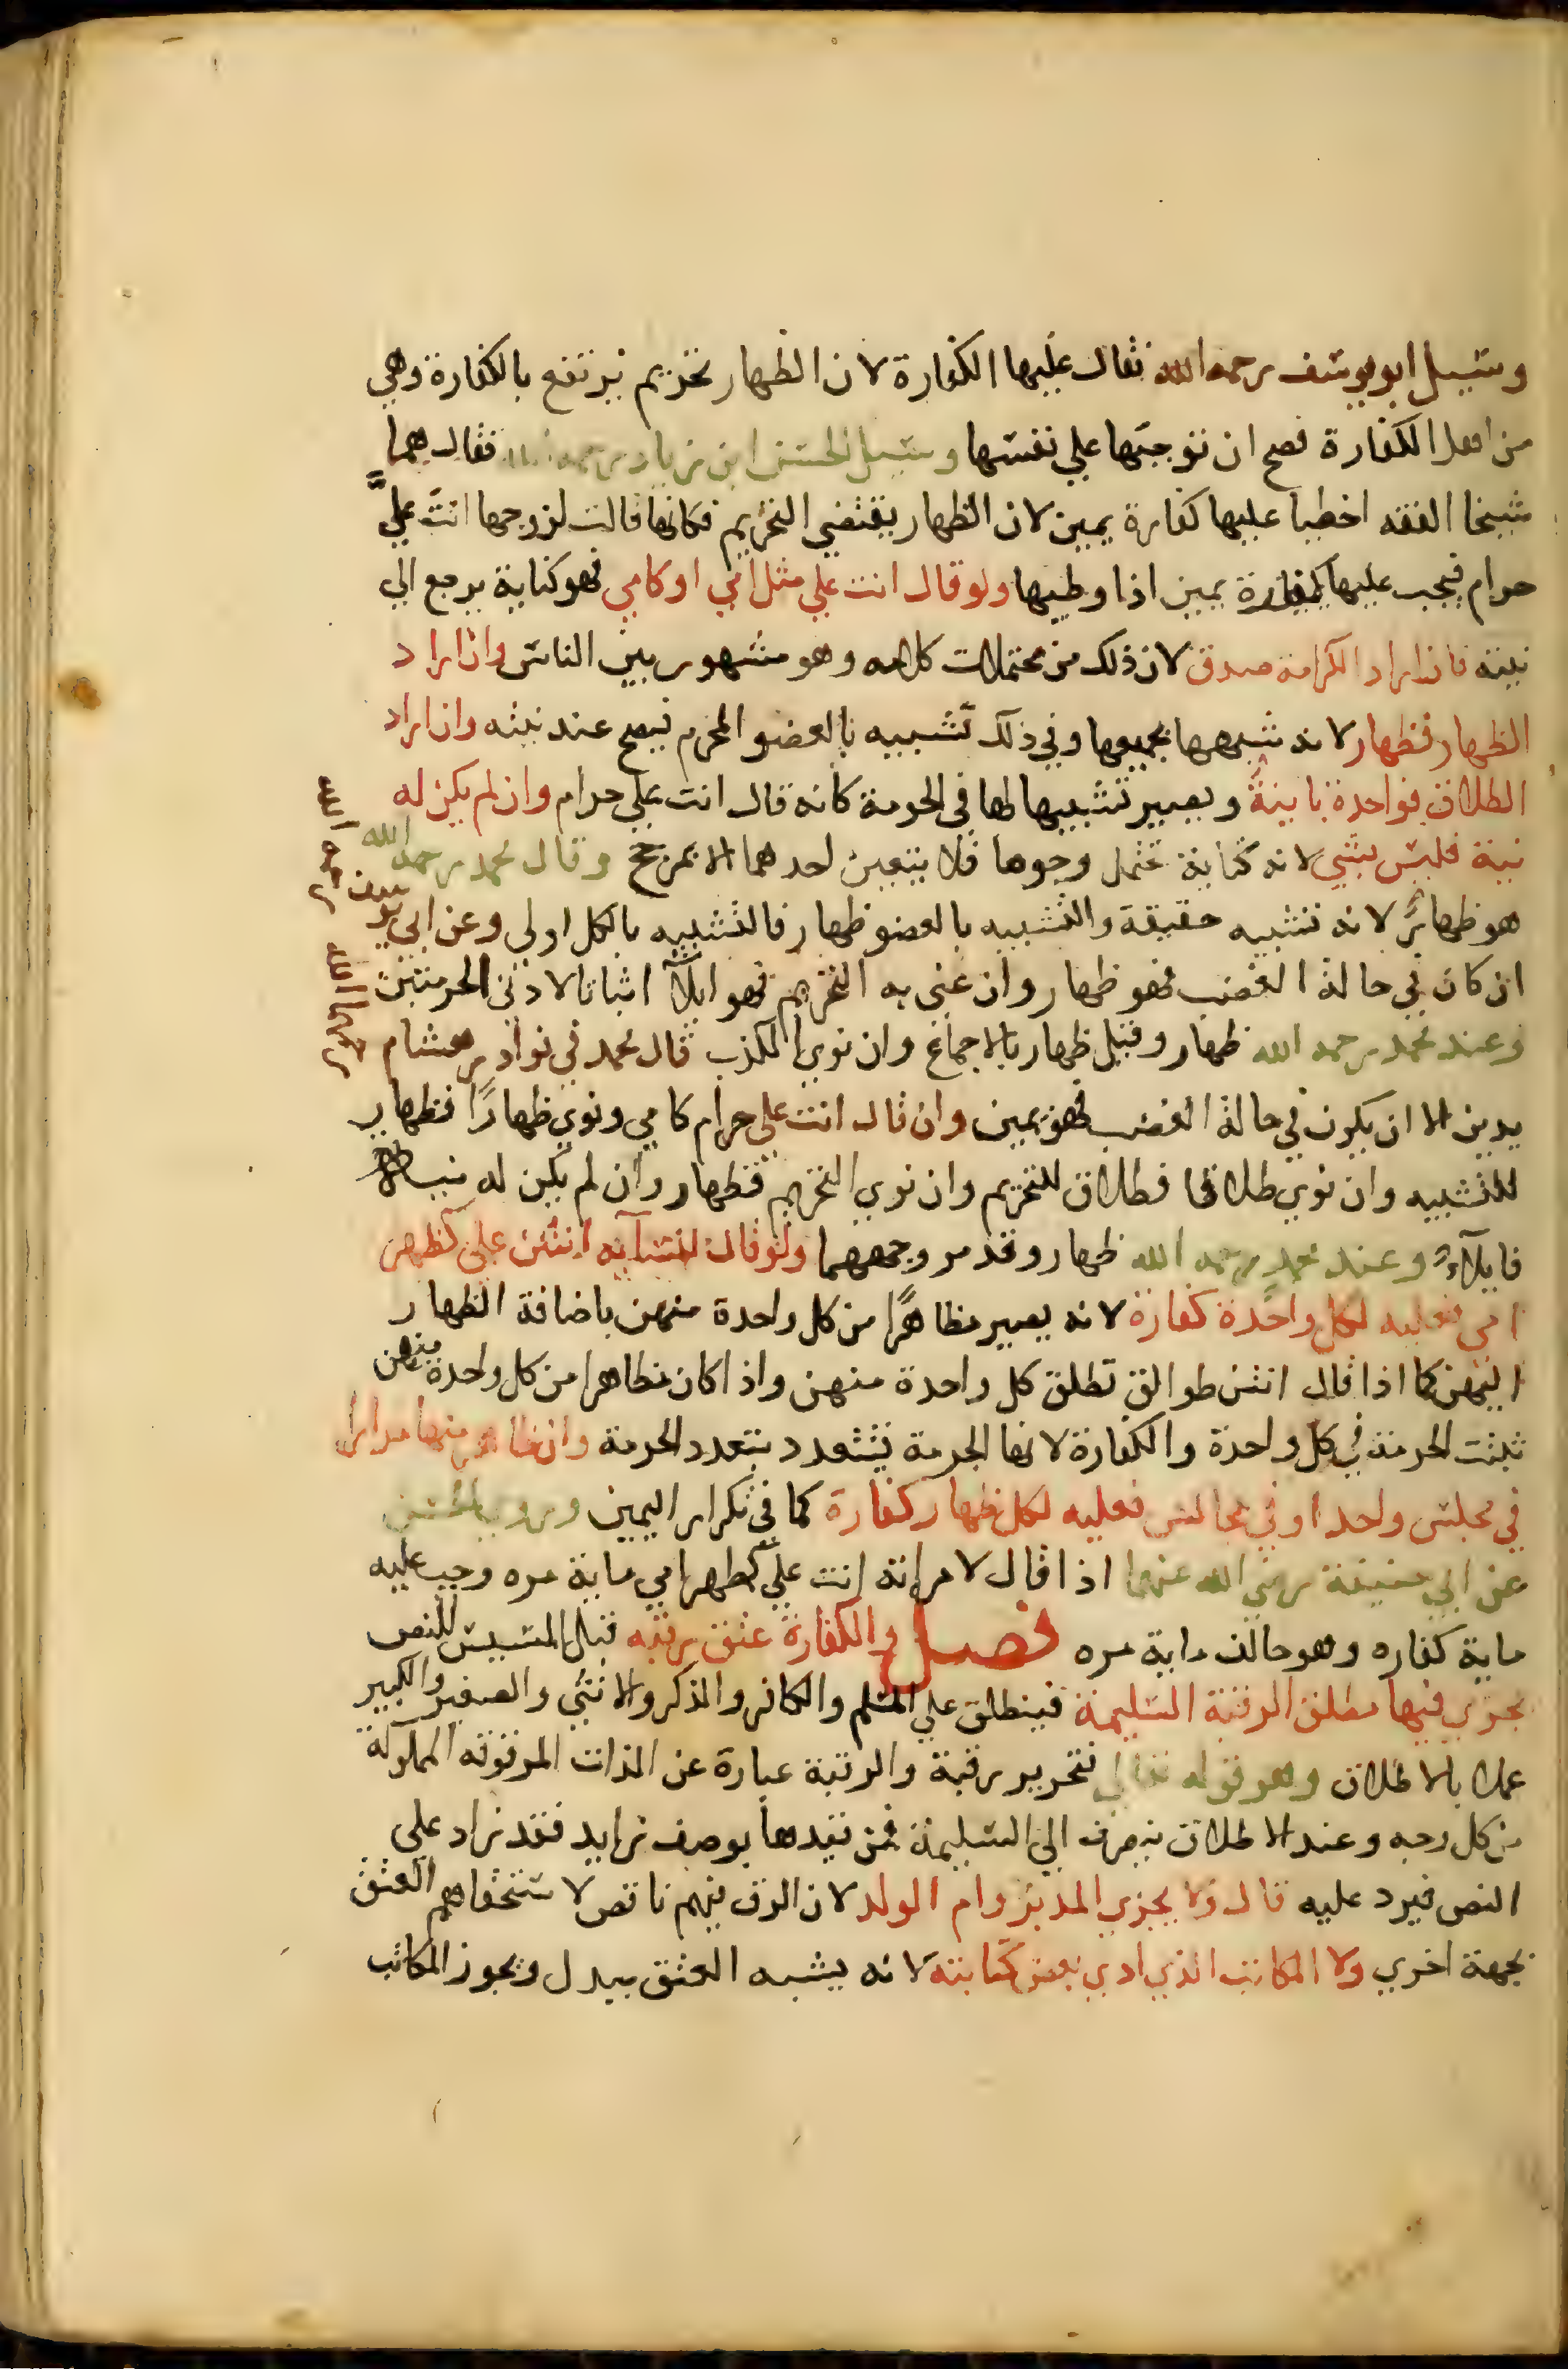 وسيل ابو يوسف رحمه الله فقال عليها الكفارة لان الظهار تحريم يرتفع بالكفارة وهي
من اهل الكفارة فصح ان نوجبها علي نفسها وسيل الحسن ابن زياد رحمه الله فقال هما
شيخا الفقه اخطيا عليها كفارة يمين لان الظهار يقتضي التحريم فكانها قالت لزوجها انتَ عليَّ
حرام فيجب عليها كفارة يمين اذا وطيها ولو قال انت علي مثل امي او كامي فهو كناية يرجع الي
نيته فان اراد الكرامة صدق لان ذلك من محتملات كلامه وهو مشهور بين الناس وان اراد
الظهار فظهار لانه شبهها بجميعها وفي ذلك تشبيه بالعضو المحرم فيصح عند نيته وان اراد
الطلاق فواحدة باينةً ويصير تشبيهها لها في الحرمة كانه قال انت علي حرام وان لم يكن له
نية فليس بشي لانه كناية تحتمل وجوها فلا يتعين احدهما الا بمرجح وقال محمد رحمه الله
هو ظهارٌ لانه تشبيه حقيقة والتشبيه بالعضو ظهار فالتشبيه بالكل اولي وعن ابي يوسف رحمه الله
ان كان في حالة الغضب فهو ظهار وان عني به التحريم فهو ايلاً اثباتا لادني الحرمتين
وعند محمد رحمه الله ظهار وقيل ظهار بالاجماع وان نوي الكذب قال محمد في نوادر هشام رحمهما الله
يدين الا ان يكون في حالة الغضب فهو يمين وان قال انت علي حرام كامي ونوي ظهارًا فظهار
للتشبيه وان نوي طلاقا فطلاق للتحريم وان نوي التحريم فظهار وان لم يكن له نية
فايلاءٌ وعند محمد رحمه الله ظهار وقد مر وجههما ولو قال لنسآيه انتن علي كظهر
امي فعليه لكل واحدة كفارة لانه يصير مظاهرًا من كل واحدة منهن باضافة الظهار
اليهن كما اذا قال انتن طوالق تطلق كل واحدة منهن واذا كان مظاهرا من كل واحدة منهن
تثبت الحرمة في كل واحدة والكفارة لانها الحرمة فتتعدد بتعدد الحرمة وان ظاهر منها مرارا
في مجلس واحد او في مجالس فعليه لكل ظهار كفارة كما في تكرار اليمين وروي الحسن
عن ابي حنيفة رضي الله عنهما اذا قال لامراته انت علي كظهر امي ماية مره وجب عليه
ماية كفاره وهو حالف ماية مره فصل والكفارة عتق رقبه قبل المسيس للنص
يجزي فيها مطلق الرقبة السليمة فينطلق علي المسلم والكافر والذكر والانثي والصغير والكبير
عملا بالاطلاق وهو قوله تعالي فتحرير رقبة والرقبة عبارة عن الذات المرقوقه المملوكة
من كل وجه وعند الاطلاق ينصرف الي السليمة فمن قيدها بوصف زايد فقد زاد علي
النص فيرد عليه قال ولا يجزي المدبر وام الولد لان الرق فيهم ناقص لاستحقاقهم العتق
بجهة اخري ولا المكاتب الذي ادي بعض كتابته لانه يشبه العتق ببدل ويجوز المكاتب